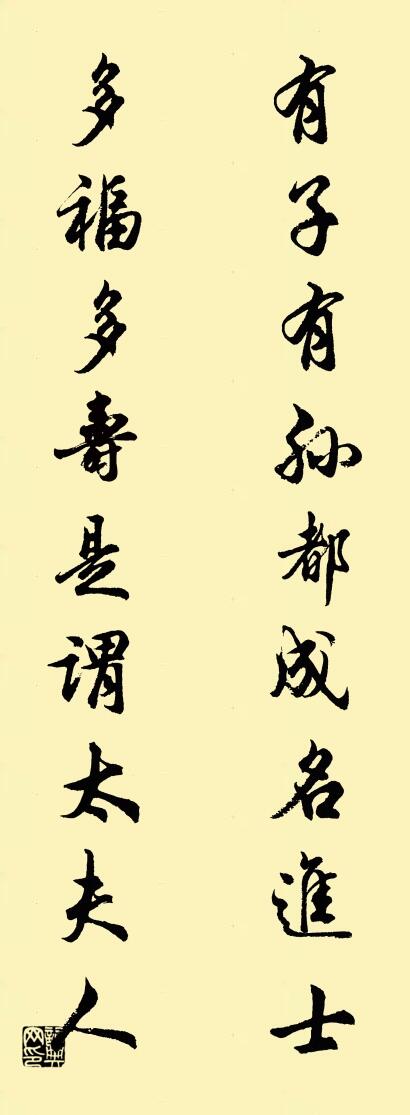 有子有孙都成名進士
多福多壽是谓太夫人